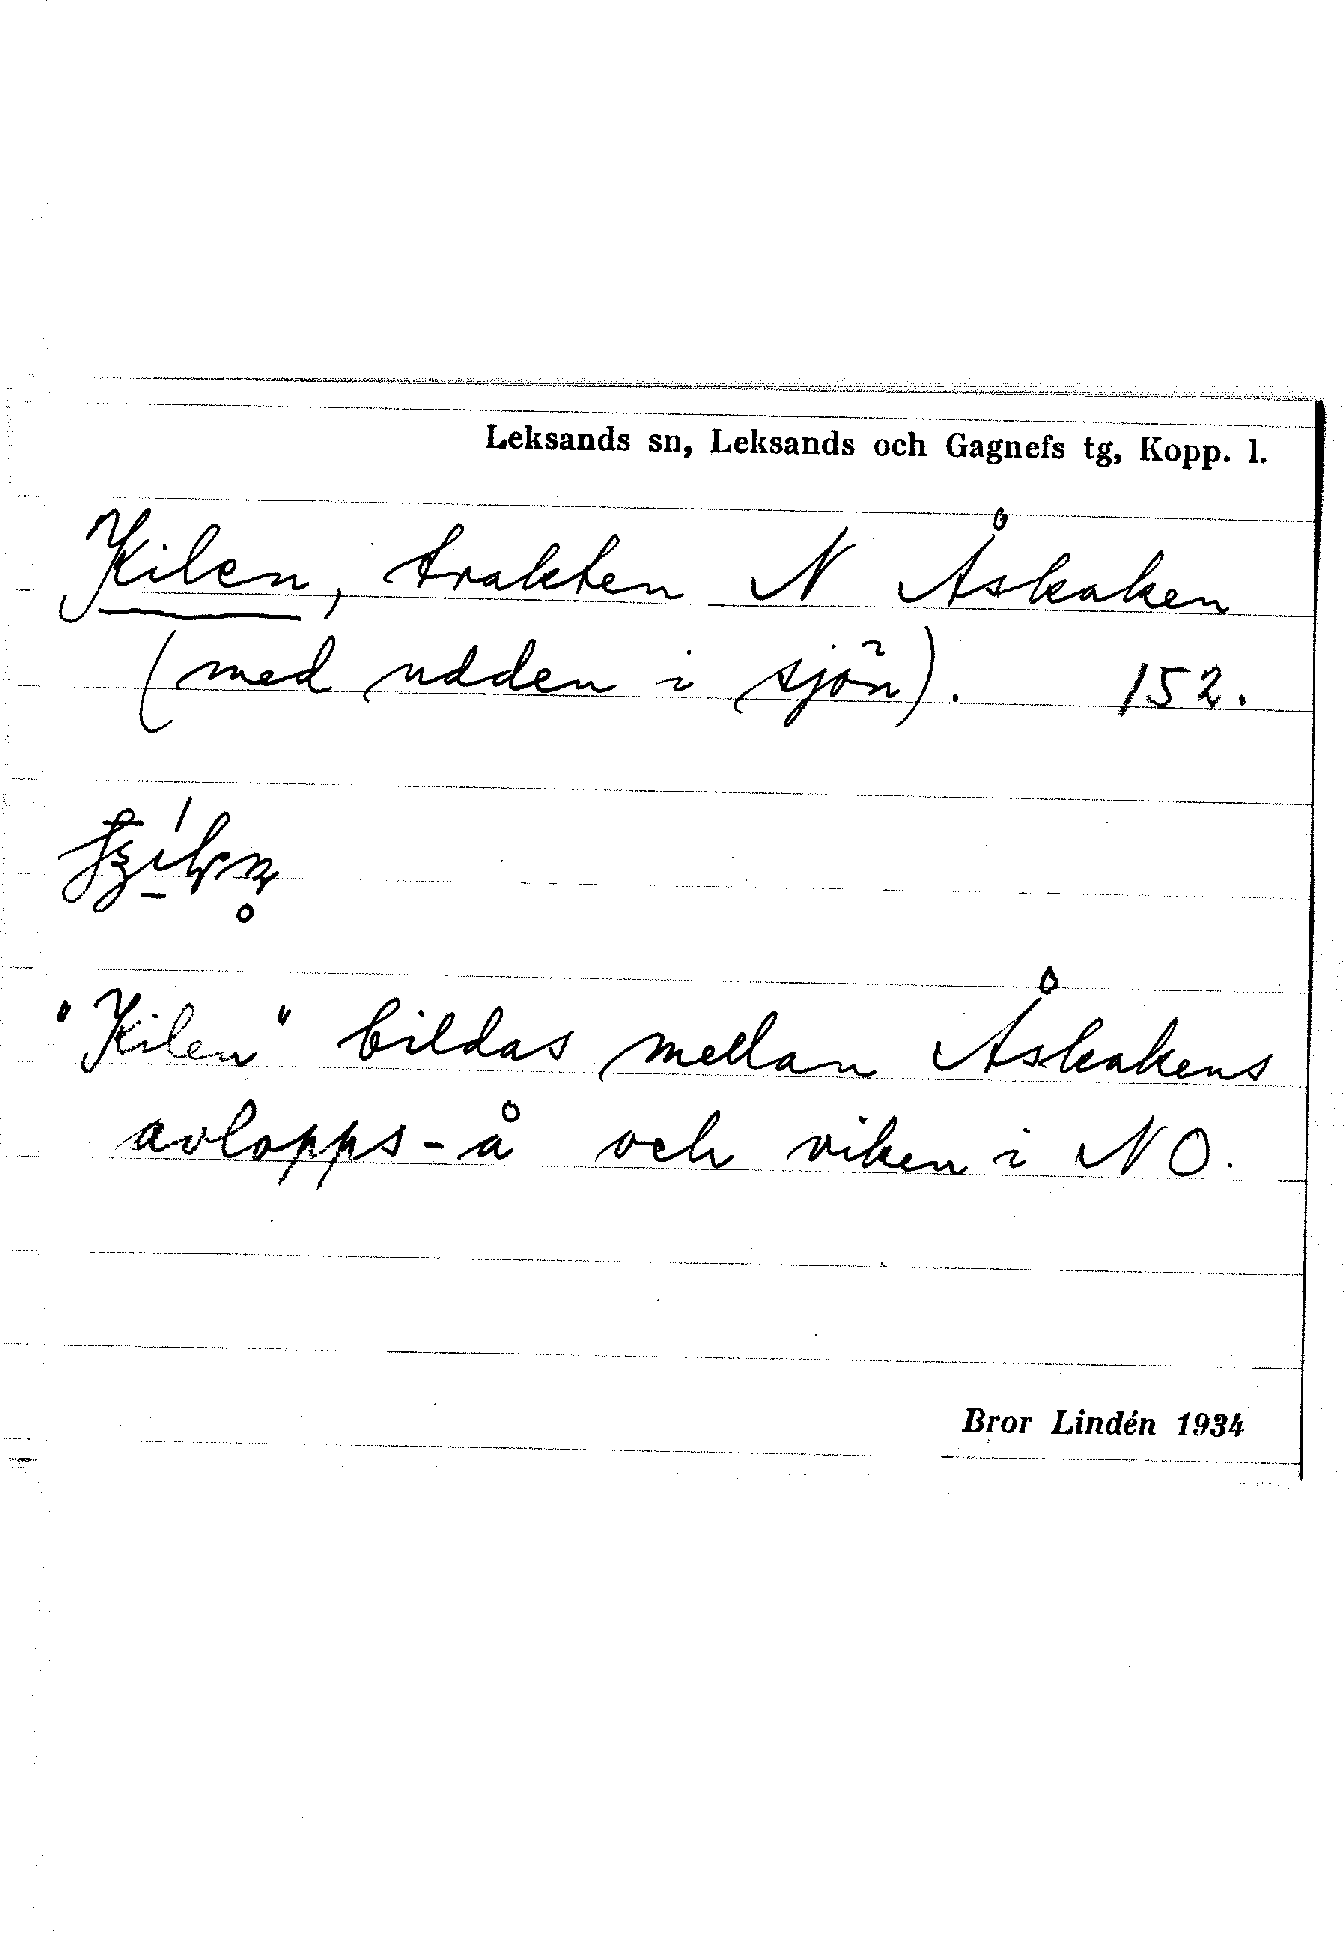 Leksands sn, Leksands och Gagnefs tg, Kopp. l.
Kilen, trakten N Åskaken
(med udden i sjön). 152.
"Kilen" bildas mellan Åskakens
avlopps-å och viken i NO.
Bror Lindén 1934